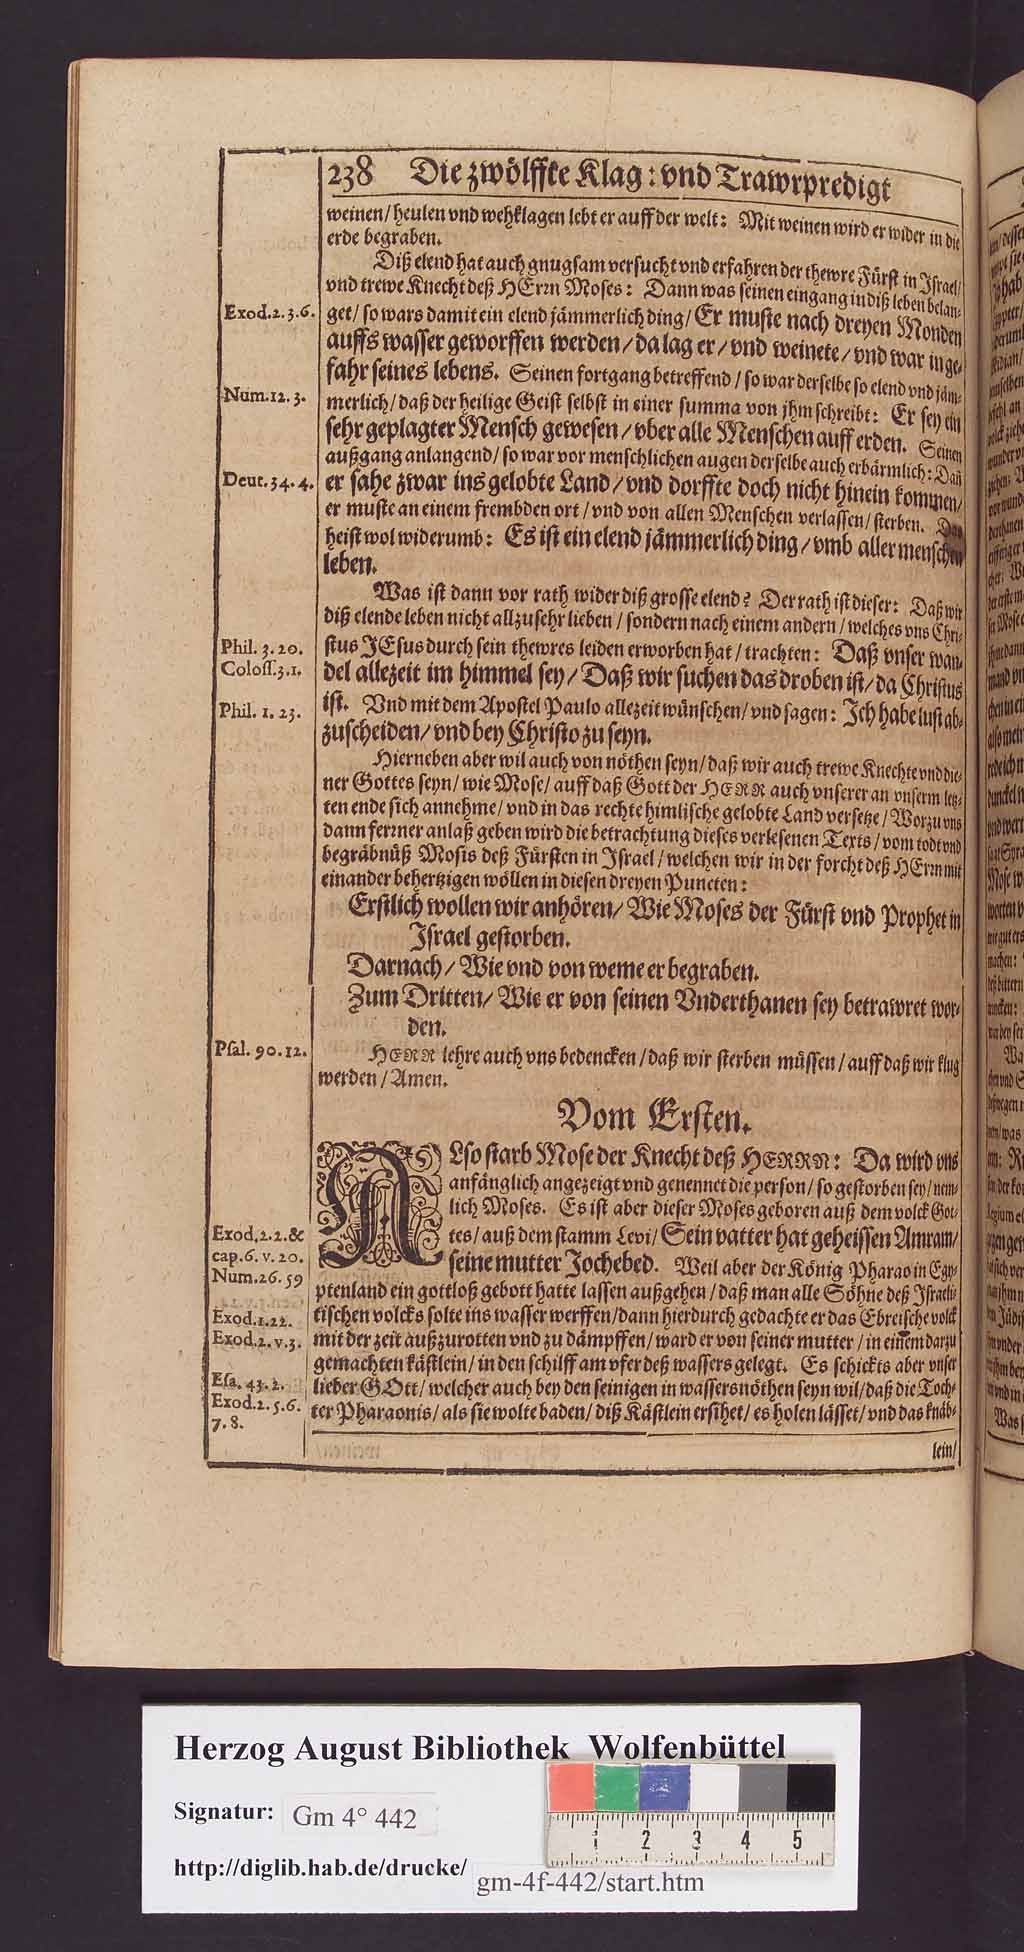 238 Die zwölffte Klag: vnd Trawrpredigt
weinen/ heulen vnd wehklagen lebt er auff der welt: Mit weinen wird er wider in die
erde begraben.
Diß elend hat auch gnugsam versucht vnd erfahren der thewre Fürst in Israel/
vnd trewe Knecht deß HErrn Moses: Dann was seinen eingang in diß leben belan-
Exod. 2. 3. 6.
get/ so wars damit ein elend jämmerlich ding/ Er muste nach dreyen Monden
auffs wasser geworffen werden/ da lag er/ vnd weinete/ vnd war in ge-
fahr seines lebens. Seinen fortgang betreffend/ so war derselbe so elend vnd jäm-
Num. 12. 3.
merlich/ daß der heilige Geist selbst in einer summa von jhm schreibt: Er sey ein
sehr geplagter Mensch gewesen/ vber alle Menschen auff erden. Seinen
außgang anlangend/ so war vor menschlichen augen derselbe auch erbärmlich: Dañ
Deut. 34. 4.
er sahe zwar ins gelobte Land/ vnd dorffte doch nicht hinein kommen/
er muste an einem frembden ort/ vnd von allen Menschen verlassen/ sterben. Das
heist wol widerumb: Es ist ein elend jämmerlich ding/ vmb aller menschen
leben.
Was ist dann vor rath wider diß grosse elend? Der rath ist dieser: Daß wir
diß elende leben nicht allzusehr lieben/ sondern nach einem andern/ welches vns Chri-
Phil. 3. 20.
stus JEsus durch sein thewres leiden erworben hat/ trachten: Daß vnser wan-
Coloss. 3. 1.
del allezeit im himmel sey/ Daß wir suchen das droben ist/ da Christus
Phil. 1. 23.
ist. Vnd mit dem Apostel Paulo allezeit wünschen/ vnd sagen: Ich habe lust ab-
zuscheiden/ vnd bey Christo zu seyn.
Hierneben aber wil auch von nöthen seyn/ daß wir auch trewe Knechte vnd die-
ner Gottes seyn/ wie Mose/ auff daß Gott der HERR auch vnserer an vnserm letz-
ten ende sich annehme/ vnd in das rechte himlische gelobte Land versetze/ Worzu vns
dann ferrner anlaß geben wird die betrachtung dieses verlesenen Texts/ vom todt vnd
begräbnüß Mosis deß Fürsten in Israel/ welchen wir in der forcht deß HErrn mit
einander behertzigen wöllen in diesen dreyen Puncten:
Erstlich wollen wir anhören/ Wie Moses der Fürst vnd Prophet in
Israel gestorben.
Darnach/ Wie vnd von weme er begraben.
Zum Dritten/ Wie er von seinen Vnderthanen sey betrawret wor-
den.
Psal. 90. 12.
HERR lehre auch vns bedencken/ daß wir sterben müssen/ auff daß wir klug
werden/ Amen.
Vom Ersten.
ALso starb Mose der Knecht deß HERRN: Da wird vns
anfänglich angezeigt vnd genennet die person/ so gestorben sey/ nem-
lich Moses. Es ist aber dieser Moses geboren auß dem volck Got-
Exod. 2. 2. &
tes/ auß dem stamm Levi/ Sein vatter hat geheissen Amram/
cap. 6. v. 20.
seine mutter Jochebed. Weil aber der König Pharao in Egy-
Num. 26. 59
ptenland ein gottloß gebott hatte lassen außgehen/ daß man alle Söhne deß Israeli-
Exod. 1. 22.
tischen volcks solte ins wasser werffen/ dann hierdurch gedachte er das Ebreische volck
Exod. 2. v. 3.
mit der zeit außzurotten vnd zu dämpffen/ ward er von seiner mutter/ in einem darzu
gemachten kästlein/ in den schilff am vfer deß wassers gelegt. Es schickts aber vnser
Esa. 43. 2.
lieber GOtt/ welcher auch bey den seinigen in wassersnöthen seyn wil/ daß die Toch-
Exod. 2. 5. 6.
7. 8.
ter Pharaonis/ als sie wolte baden/ diß Kästlein ersihet/ es holen lässet/ vnd das knäb-
lein/
Herzog August Bibliothek Wolfenbüttel
Signatur: Gm 4° 442
1 2 3 4 5
http://diglib.hab.de/drucke/ gm-4f-442/start.htm